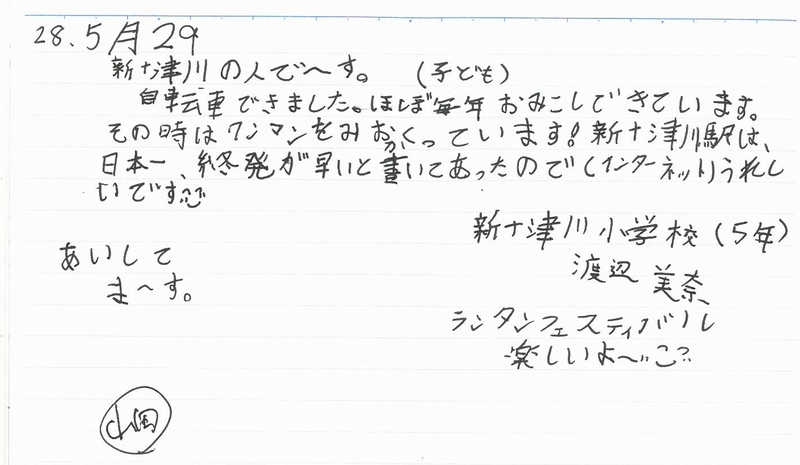 28.5月29
新十津川の人で〜す。（子ども）
自転車できました。ほぼ毎年おみこしできています。
その時はワンマンをみおくっています！新十津川駅は、
日本一、終発が早いと書いてあったので（インターネット）うれし
いです
新十津川小学校（5年）
渡辺 美奈
あいして
ま〜す。
ランタンフェスティバル
楽しいよ〜